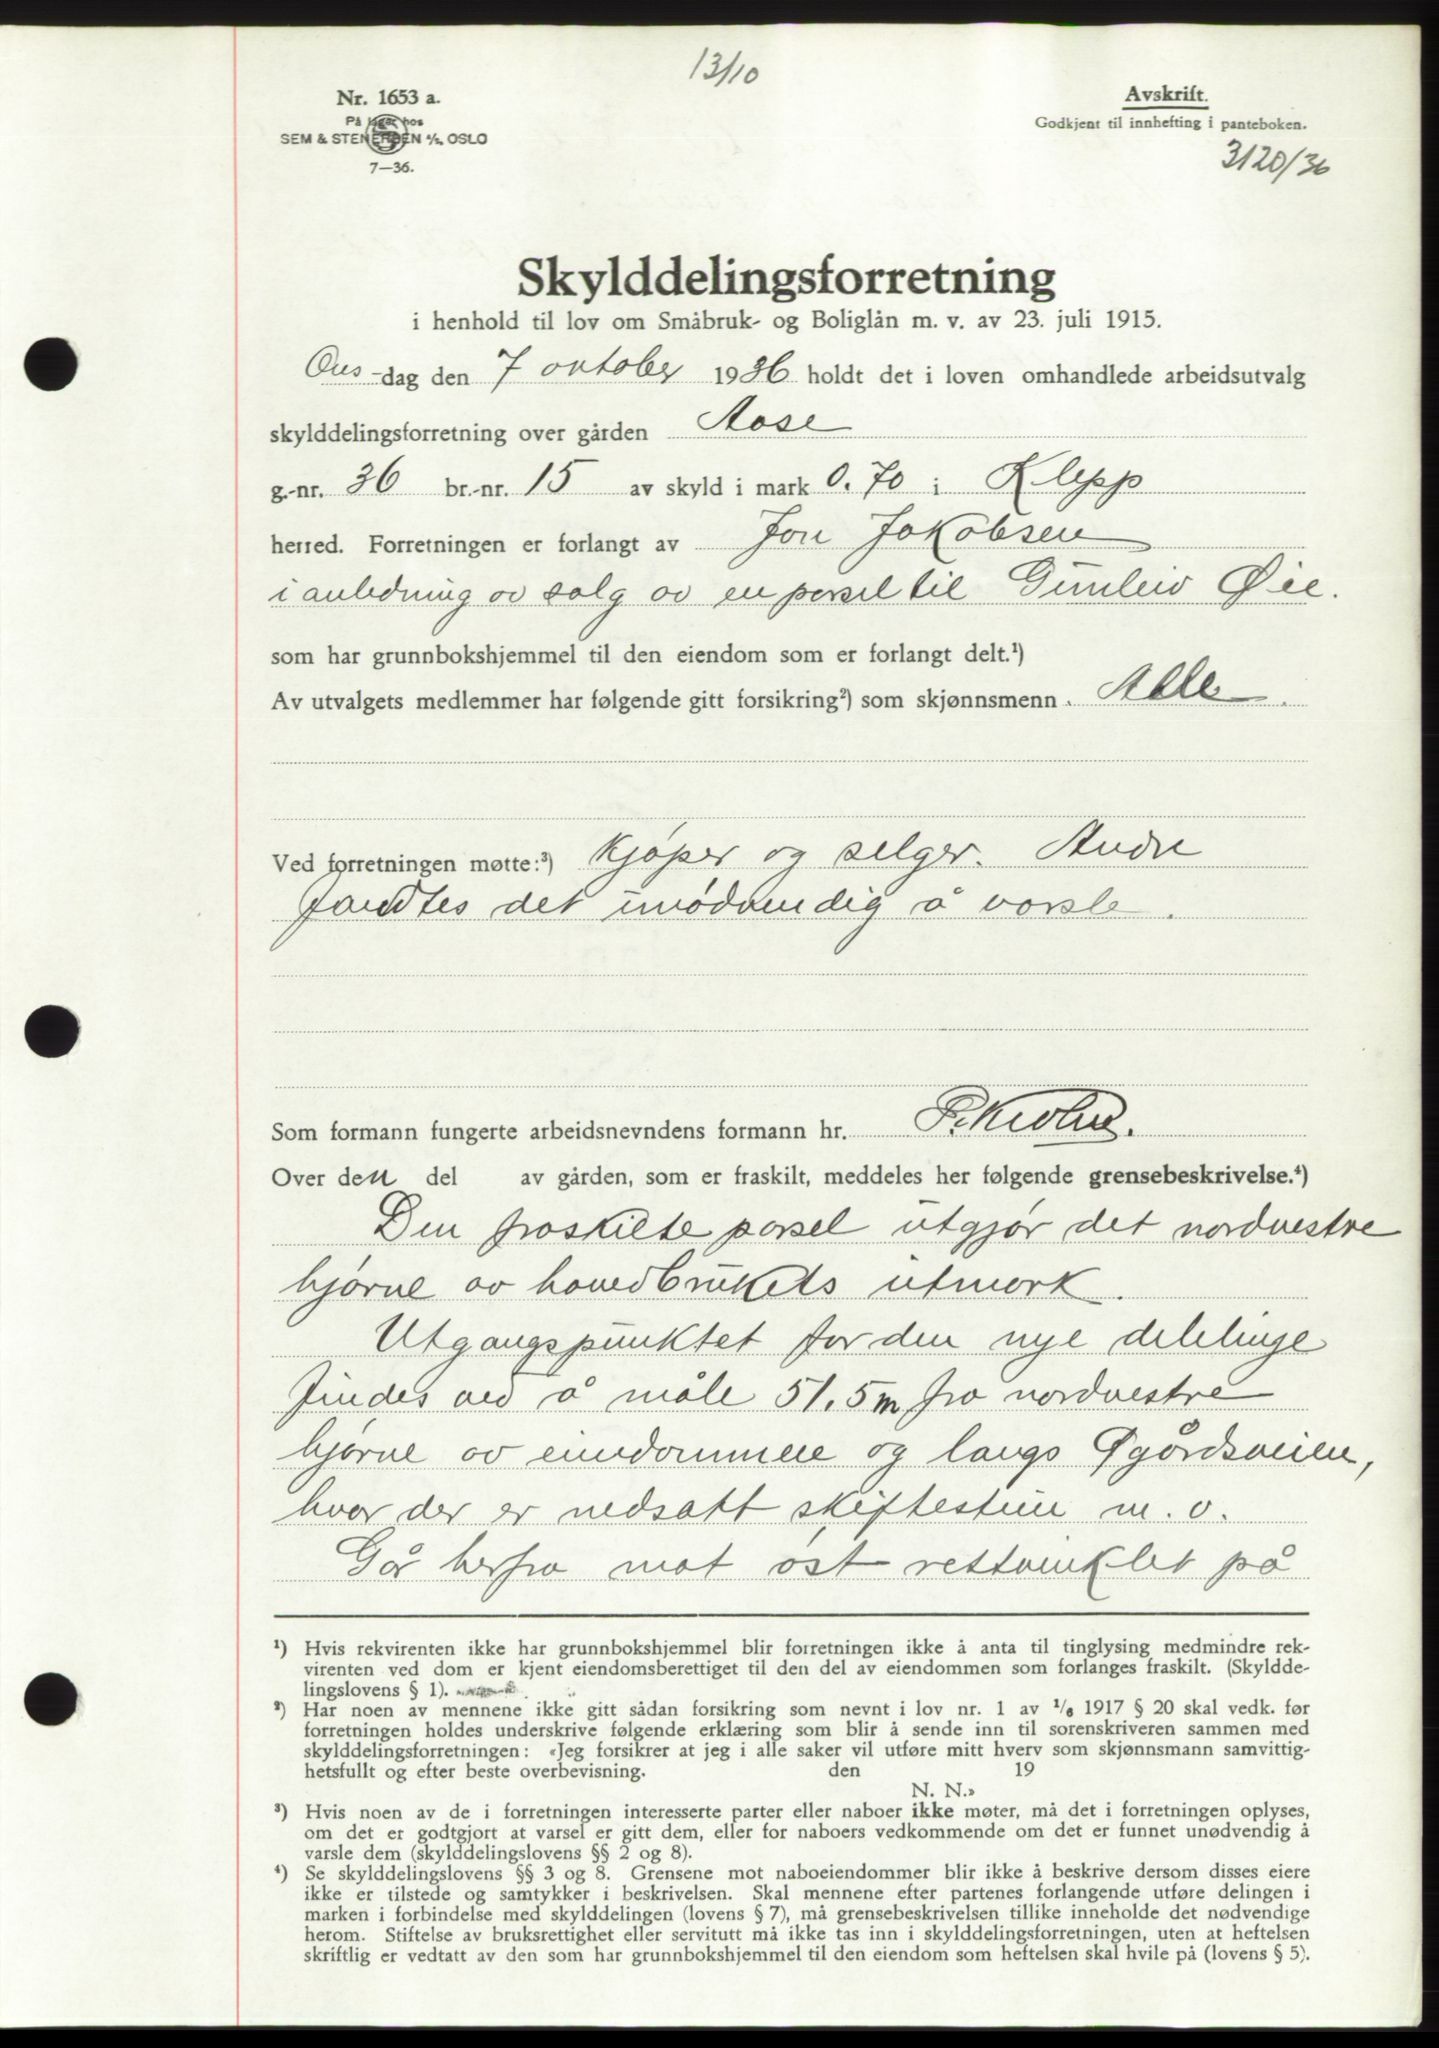 13/10
Nr. 1653 a.
På lager hos
SEM & STENERSEN A/S, OSLO
7—36.
Avskrift.
Godkjent til innhefting i panteboken.
3120/36
Skylddelingsforretning
i henhold til lov om Småbruk- og Boliglån m. v. av 23. juli 1915.
Ons-dag den 7 oktober 1936 holdt det i loven omhandlede arbeidsutvalg
skylddelingsforretning over gården Aase
g.-nr. 36 br.-nr. 15 av skyld i mark 0.70 i Klepp
herred. Forretningen er forlangt av Jon Jakobsen
i anledning av salg av en parsel til Gunleiv Øie.
som har grunnbokshjemmel til den eiendom som er forlangt delt.¹)
Av utvalgets medlemmer har følgende gitt forsikring²) som skjønnsmenn. Alle
Ved forretningen møtte:³) kjøper og selger. Andre
fandtes det unødvendig å varsle.
Som formann fungerte arbeidsnevndens formann hr.
Over den del av gården, som er fraskilt, meddeles her følgende grensebeskrivelse.⁴)
Den fraskilte parsel utgjør det nordvestre
hjørne av hovedbrukets utmark.
Utgangspunktet for den nye delelinje
findes ved å måle 51.5m fra nordvestre
hjørne av eiendommene og langs Øgårdsveien,
hvor der er nedsatt skiftestein m. v.
Går herfra mot øst rettvinklet på
¹) Hvis rekvirenten ikke har grunnbokshjemmel blir forretningen ikke å anta til tinglysing medmindre rek-
virenten ved dom er kjent eiendomsberettiget til den del av eiendommen som forlanges fraskilt. (Skyldde-
lingslovens § 1).
²) Har noen av mennene ikke gitt sådan forsikring som nevnt i lov nr. 1 av 1/6 1917 § 20 skal vedk. før
forretningen holdes underskrive følgende erklæring som blir å sende inn til sorenskriveren sammen med
skylddelingsforretningen: «Jeg forsikrer at jeg i alle saker vil utføre mitt hverv som skjønnsmann samvittig-
hetsfullt og efter beste overbevisning. den 19
N. N.»
³) Hvis noen av de i forretningen interesserte parter eller naboer ikke møter, må det i forretningen oplyses,
om det er godtgjort at varsel er gitt dem, eller for naboers vedkommende om det er funnet unødvendig å
varsle dem (skylddelingslovens §§ 2 og 8).
⁴) Se skylddelingslovens §§ 3 og 8. Grensene mot naboeiendommer blir ikke å beskrive dersom disses eiere
ikke er tilstede og samtykker i beskrivelsen. Skal mennene efter partenes forlangende utføre delingen i
marken i forbindelse med skylddelingen (lovens § 7), må grensebeskrivelsen tillike inneholde det nødvendige
herom. Stiftelse av bruksrettighet eller servitutt må ikke tas inn i skylddelingsforretningen, uten at heftelsen
skriftlig er vedtatt av den som har grunnbokshjemmel til den eiendom som heftelsen skal hvile på (lovens § 5).